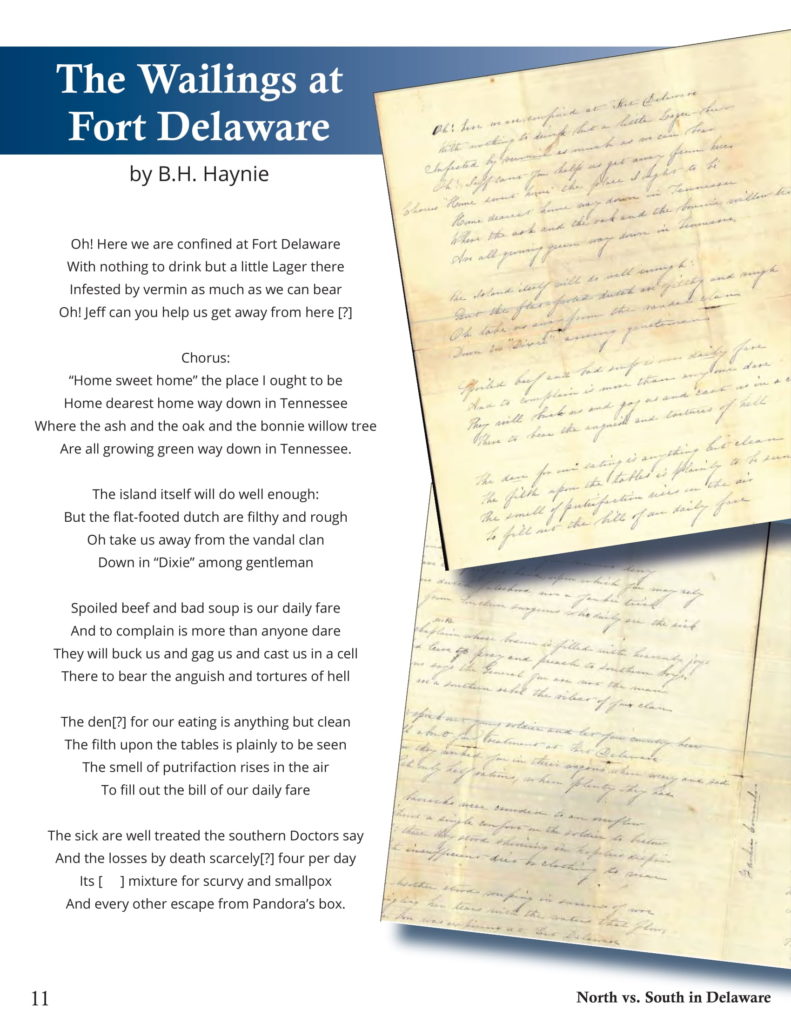 The Wailings at
Fort Delaware
by B.H. Haynie
Oh! Here we are confined at Fort Delaware
With nothing to drink but a little Lager there
Infested by vermin as much as we can bear
Oh! Jeff can you help us get away from here [?]
Chorus:
“Home sweet home” the place I ought to be
Home dearest home way down in Tennessee
Where the ash and the oak and the bonnie willow tree
Are all growing green way down in Tennessee.
The island itself will do well enough:
But the flat-footed dutch are filthy and rough
Oh take us away from the vandal clan
Down in “Dixie” among gentleman
Spoiled beef and bad soup is our daily fare
And to complain is more than anyone dare
They will buck us and gag us and cast us in a cell
There to bear the anguish and tortures of hell
The den[?] for our eating is anything but clean
The filth upon the tables is plainly to be seen
The smell of putrifaction rises in the air
To fill out the bill of our daily fare
The sick are well treated the southern Doctors say
And the losses by death scarcely[?] four per day
Its [ ] mixture for scurvy and smallpox
And every other escape from Pandora’s box.
Oh! here we are confined at Delaware
With nothing to drink but a little Lager
Infested by vermin as much as we can bear
Oh! Jeff can you help us get away from here
Chorus Home sweet home the place I ought to be
Home dearest home way down in Tennessee
Where the ash and the oak and the bonnie willow
Are all growing green way down in Tennessee
The island itself will do well enough:
But the flat footed dutch are filthy and rough
Oh take us away from the vandal clan
Down in "Dixie" among gentleman
Spoiled beef and bad soup is our daily fare
And to complain is more than any one dare
They will buck us and gag us and cast us in a
There to bear the anguish and tortures of hell
The den for our eating is anything but clean
The filth upon the tables is plainly to be seen
The smell of putrifaction rises in the air
To fill out the bill of our daily fare
upon which you may rely
surgeons who daily see the sick
chaplain whose brain is filled with heavenly joys
pray and preach to southern boys
says the General you are not the man
treatment at Fort Delaware
when plenty they had
at Fort Delaware
11
North vs. South in Delaware